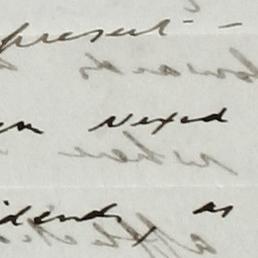 present -
en vexed
idends, as